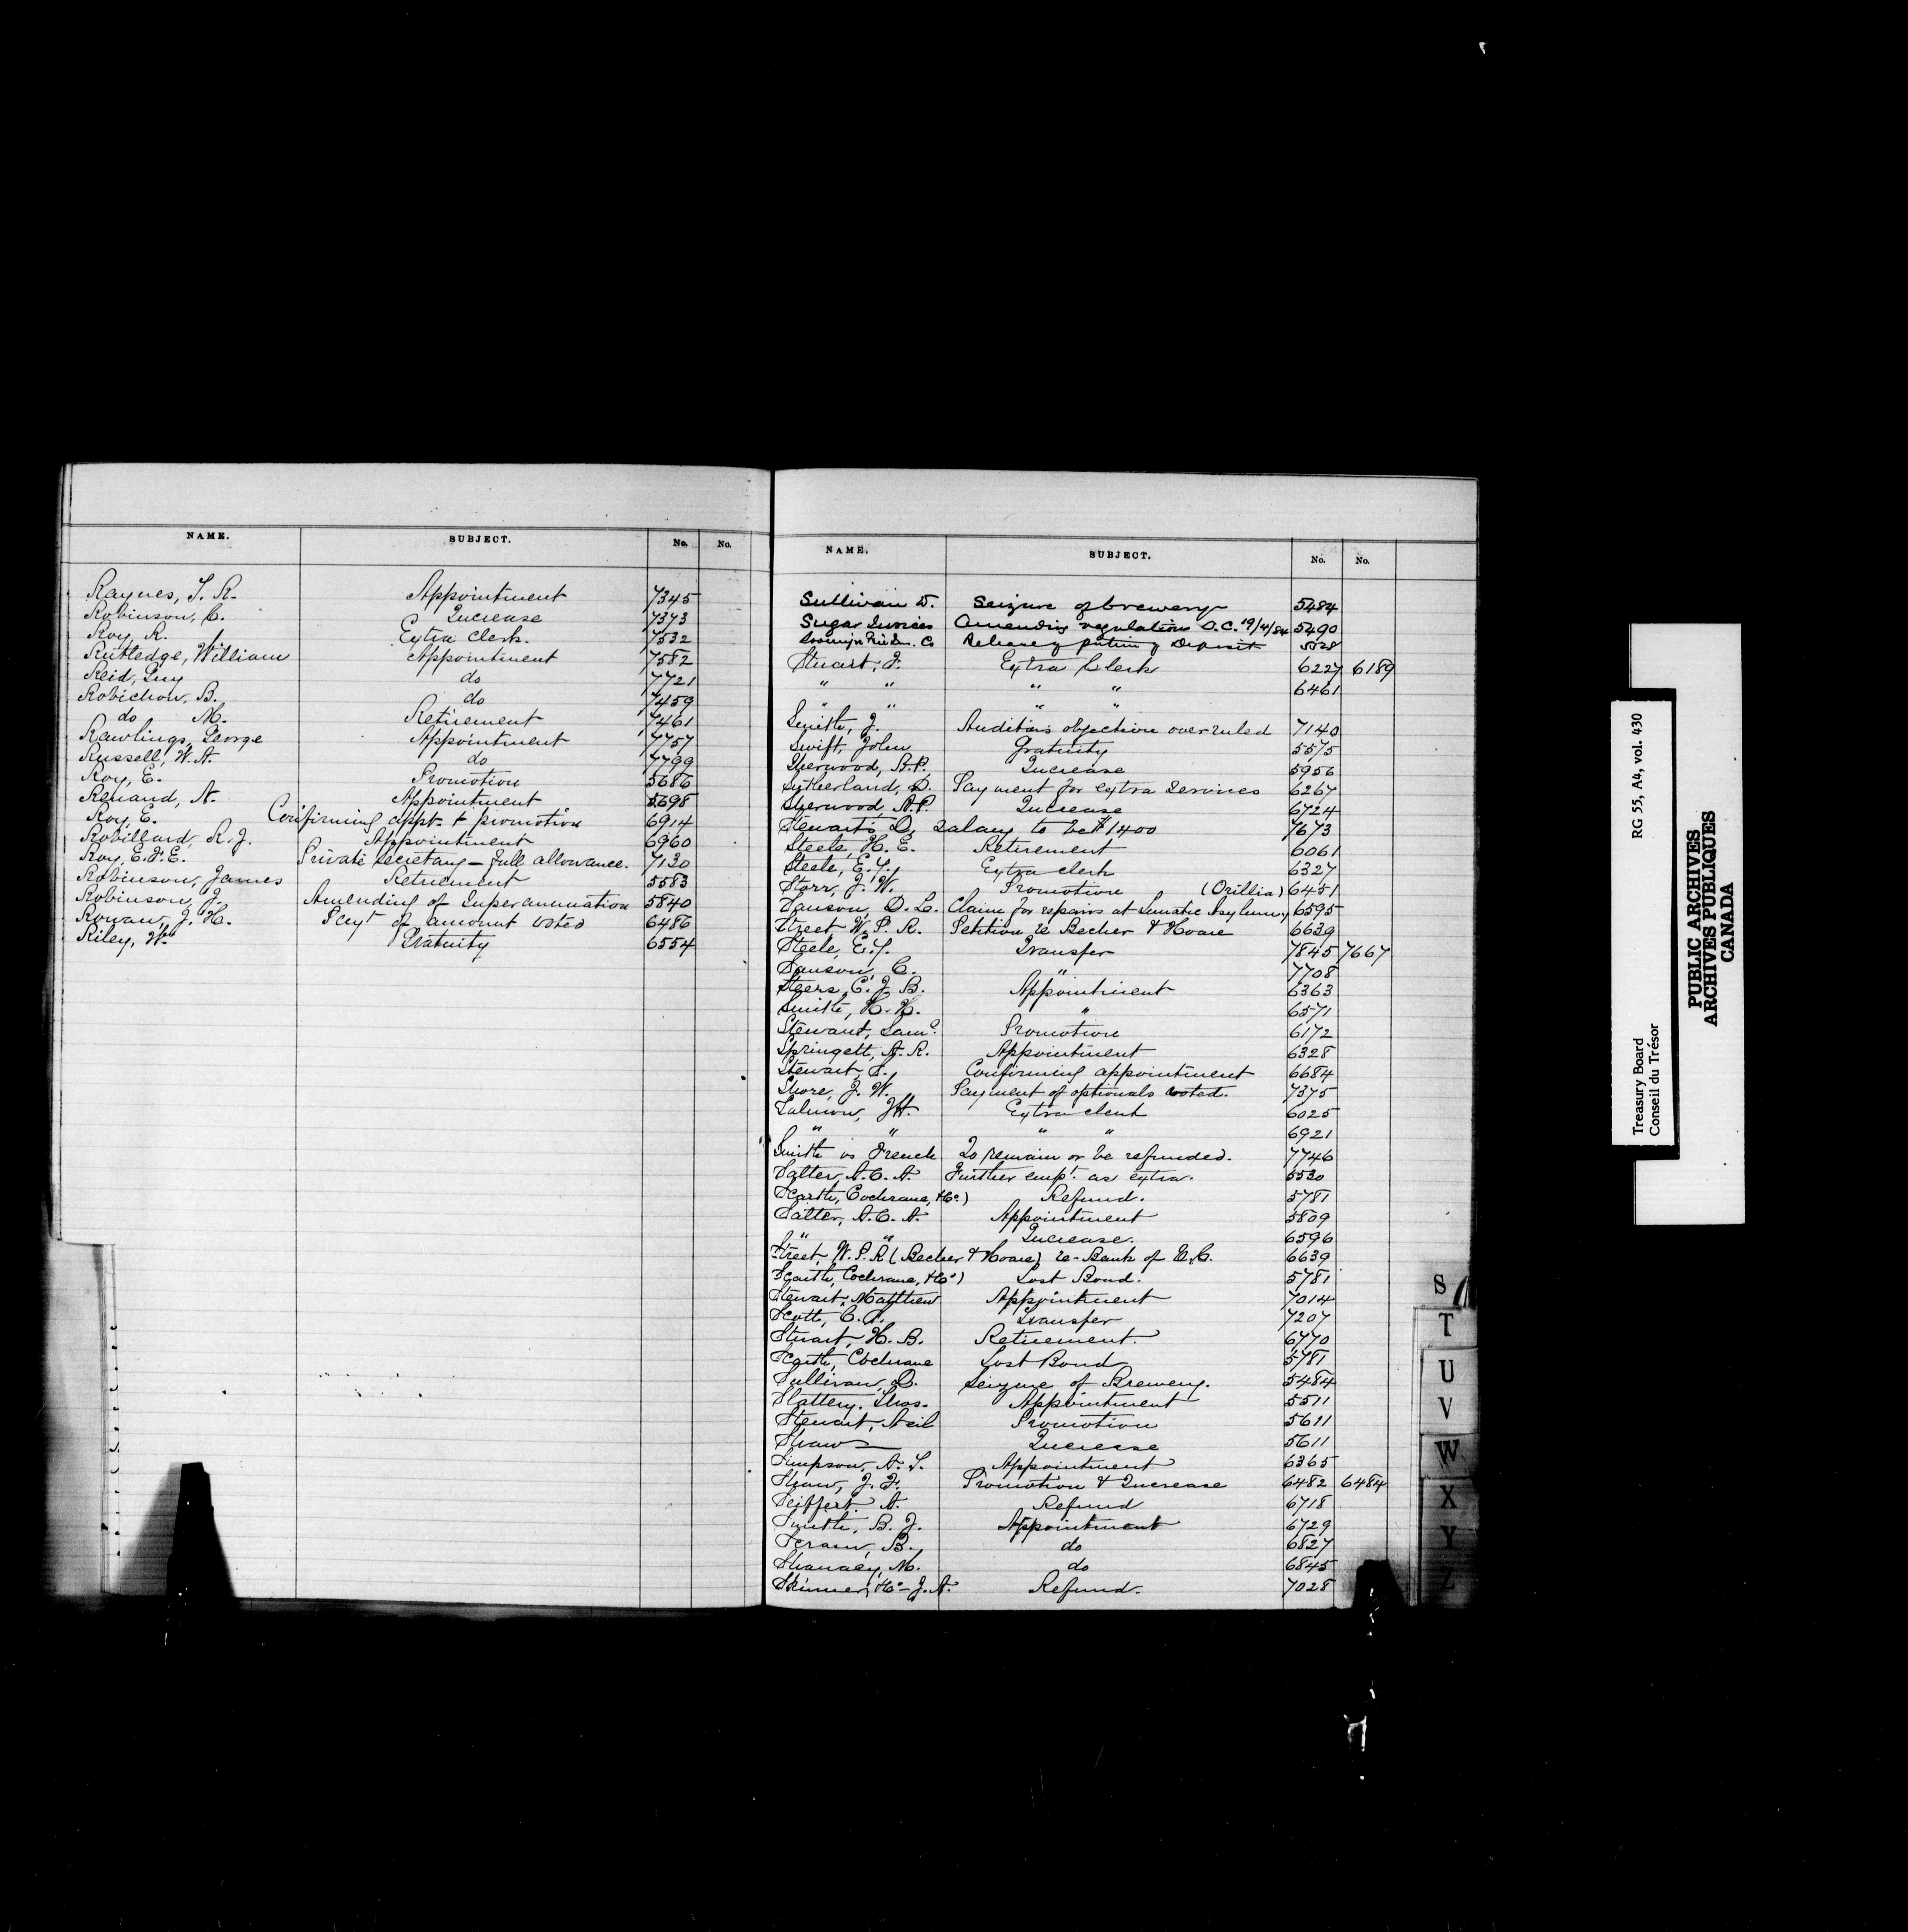 NAME. SUBJECT. No. No.
Raynes, T. R. Appointment 7345
Robinson, C. Increase 7373
Roy, R. Extra clerk. 7532
Rutledge, William Appointment 7582
Reid, Guy do 7721
Robichon, B. do 7459
do M. Retirement 7461
Rawlings, George Appointment 7757
Russell, W. A. do 7799
Roy, E. Promotion 5686
Renaud, N. Appointment 5698
Roy, E. Confirming appt. & promotion 6914
Robillard, R. J. Appointment 6960
Roy, E. F. E. Private Secretary – full allowance. 7130
Robinson, James Retirement 5583
Robinson, J. Amending of Superannuation 5840
Rowan, J. H. Payt of amount voted 6486
Riley, Wm Gratuity 6554
NAME. SUBJECT. No. No.
Sullivan D. Seizure of brewery 5484
Sugar Invoices Amending regulation O.C. 19/4/84 5490
Co Release of portion of Deposit 5528
Stuart, J. Extra Clerk 6227 6189
" " " " 6461
" " "
Smith, J. Auditor's objection overruled 7140
Swift, John Gratuity 5575
Sherwood, A.P. Increase 5956
Sutherland, D. Payment for extra services 6267
Sherwood, A.P. Increase 6724
Stewart's D. Salary to be $1400 7673
Steele, H. E. Retirement 6061
Steele, E. Y. Extra clerk 6327
Storr, J. W. Promotion 6451
Sanson, D. L. Claim for repairs at Lunatic Asylum (Orillia) 6595
Street W. P. R. Petition re Becher & Hoare 6639
Steele, E. Y. Transfer 7845 7667
Sanson, C. " 7708
Steers, C. J. B. Appointment 6363
Smith, H. H. " 6571
Stewart, Saml. Promotion 6172
Springett, A. R. Appointment 6328
Stewart, S. Confirming appointment 6684
Shore, J. W. Payment of optionals voted. 7375
Salmon, JH. Extra clerk 6025
" " " " 6921
Smith vs French To remain or be refunded. 7746
Salter, A. C. A. Further empt. as extra. 5530
Scarth, Cochrane, & Co.) Refund. 5781
Salter, A. C. A. Appointment 5809
" " Increase. 6596
Street, W. P. R. (Becher & Hoare) re- Bank of U. C. 6639
Scarth, Cochrane, & Co) Lost Bond. 5781
Stewart, Matthew Appointment 7014
Scott, C. A. Transfer 7207
Stuart, H. B. Retirement. 6770
Scarth, Cochrane Lost Bond 5781
Sullivan, D. Seizure of Brewery. 5484
Slattery, Thos. Appointment 5511
Stewart, Neil Promotion 5611
Shaw Increase 5611
Simpson, A. S. Appointment 6365
Shaw, J. F. Promotion & Increase 6482 6484
Seiffert. A. Refund 6718
Smith, B. J. Appointment 6729
B. do 6827
M. do 6845
Skinner, & Co – J. A. Refund. 7028
S
T
U
V
W
X
Y
Z
Treasury Board RG 55, A4, vol. 430
Conseil du Trésor
PUBLIC ARCHIVES
ARCHIVES PUBLIQUES
CANADA